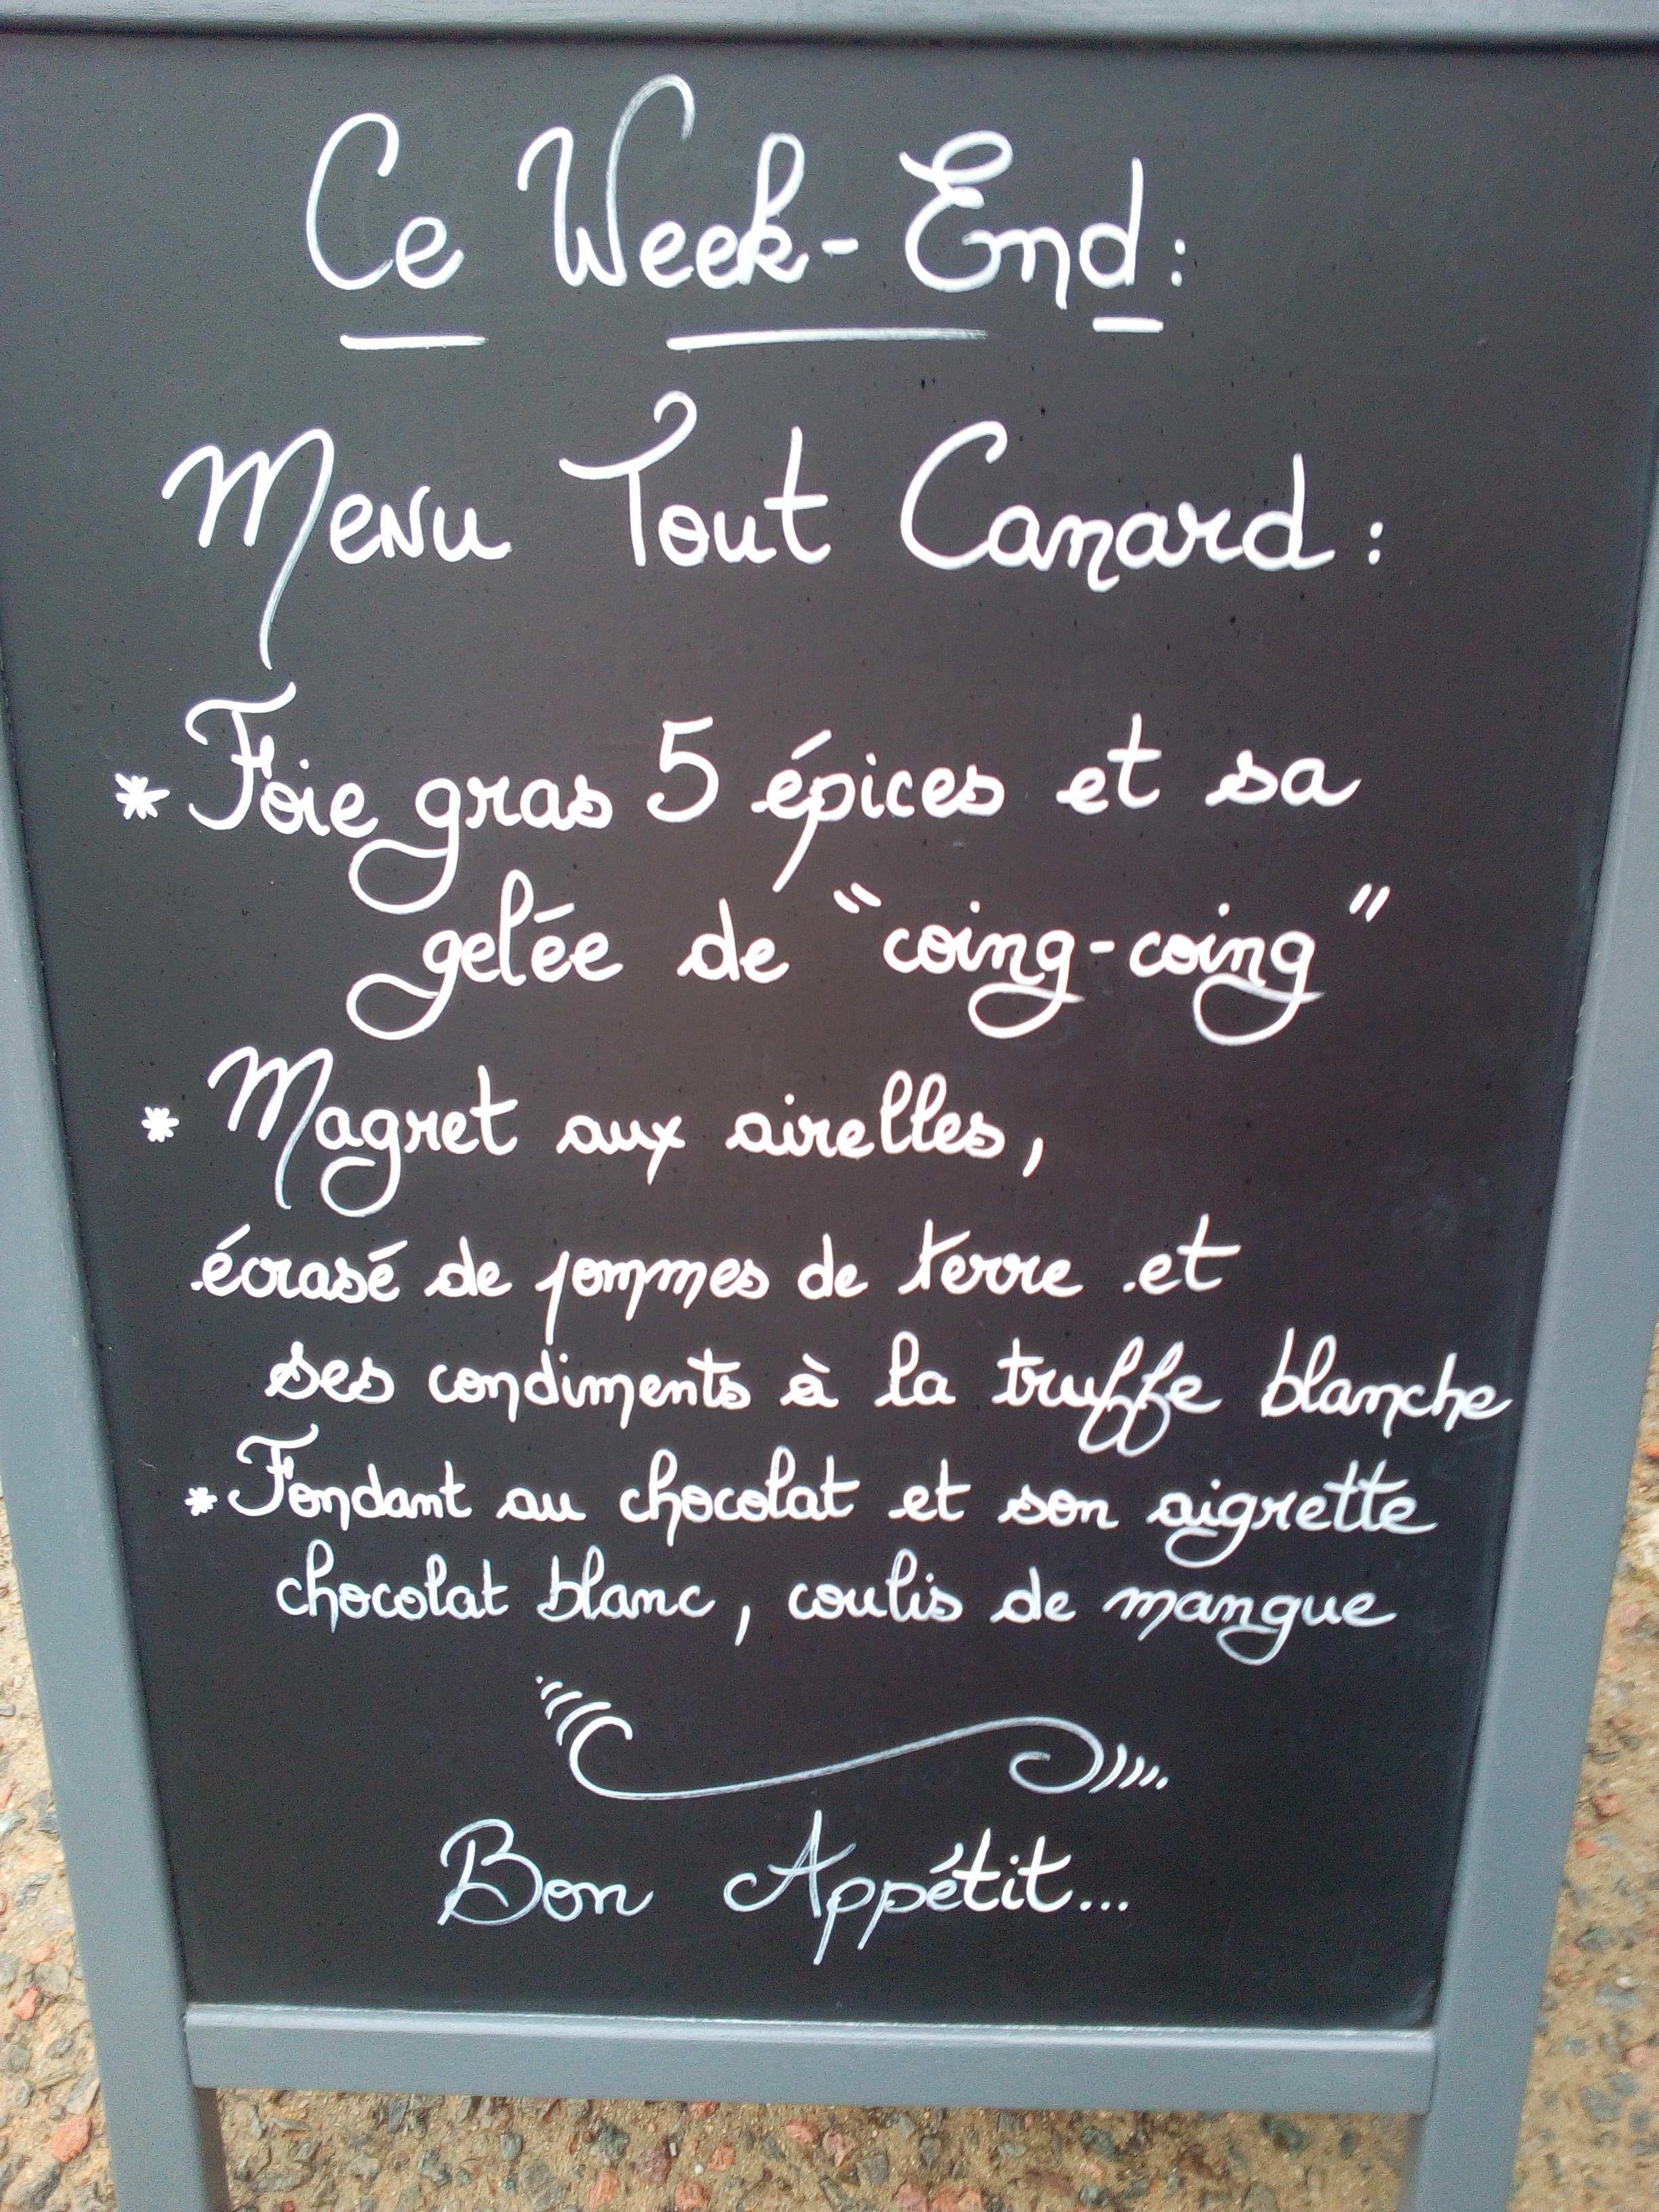 Ce Week-End :
Menu Tout Canard :
* Foie gras 5 épices et sa
gelée de "coing-coing"
* Magret aux airelles,
écrasé de pommes de terre et
ses condiments à la truffe blanche
* Fondant au chocolat et son aigrette
chocolat blanc, coulis de mangue
Bon Appétit...